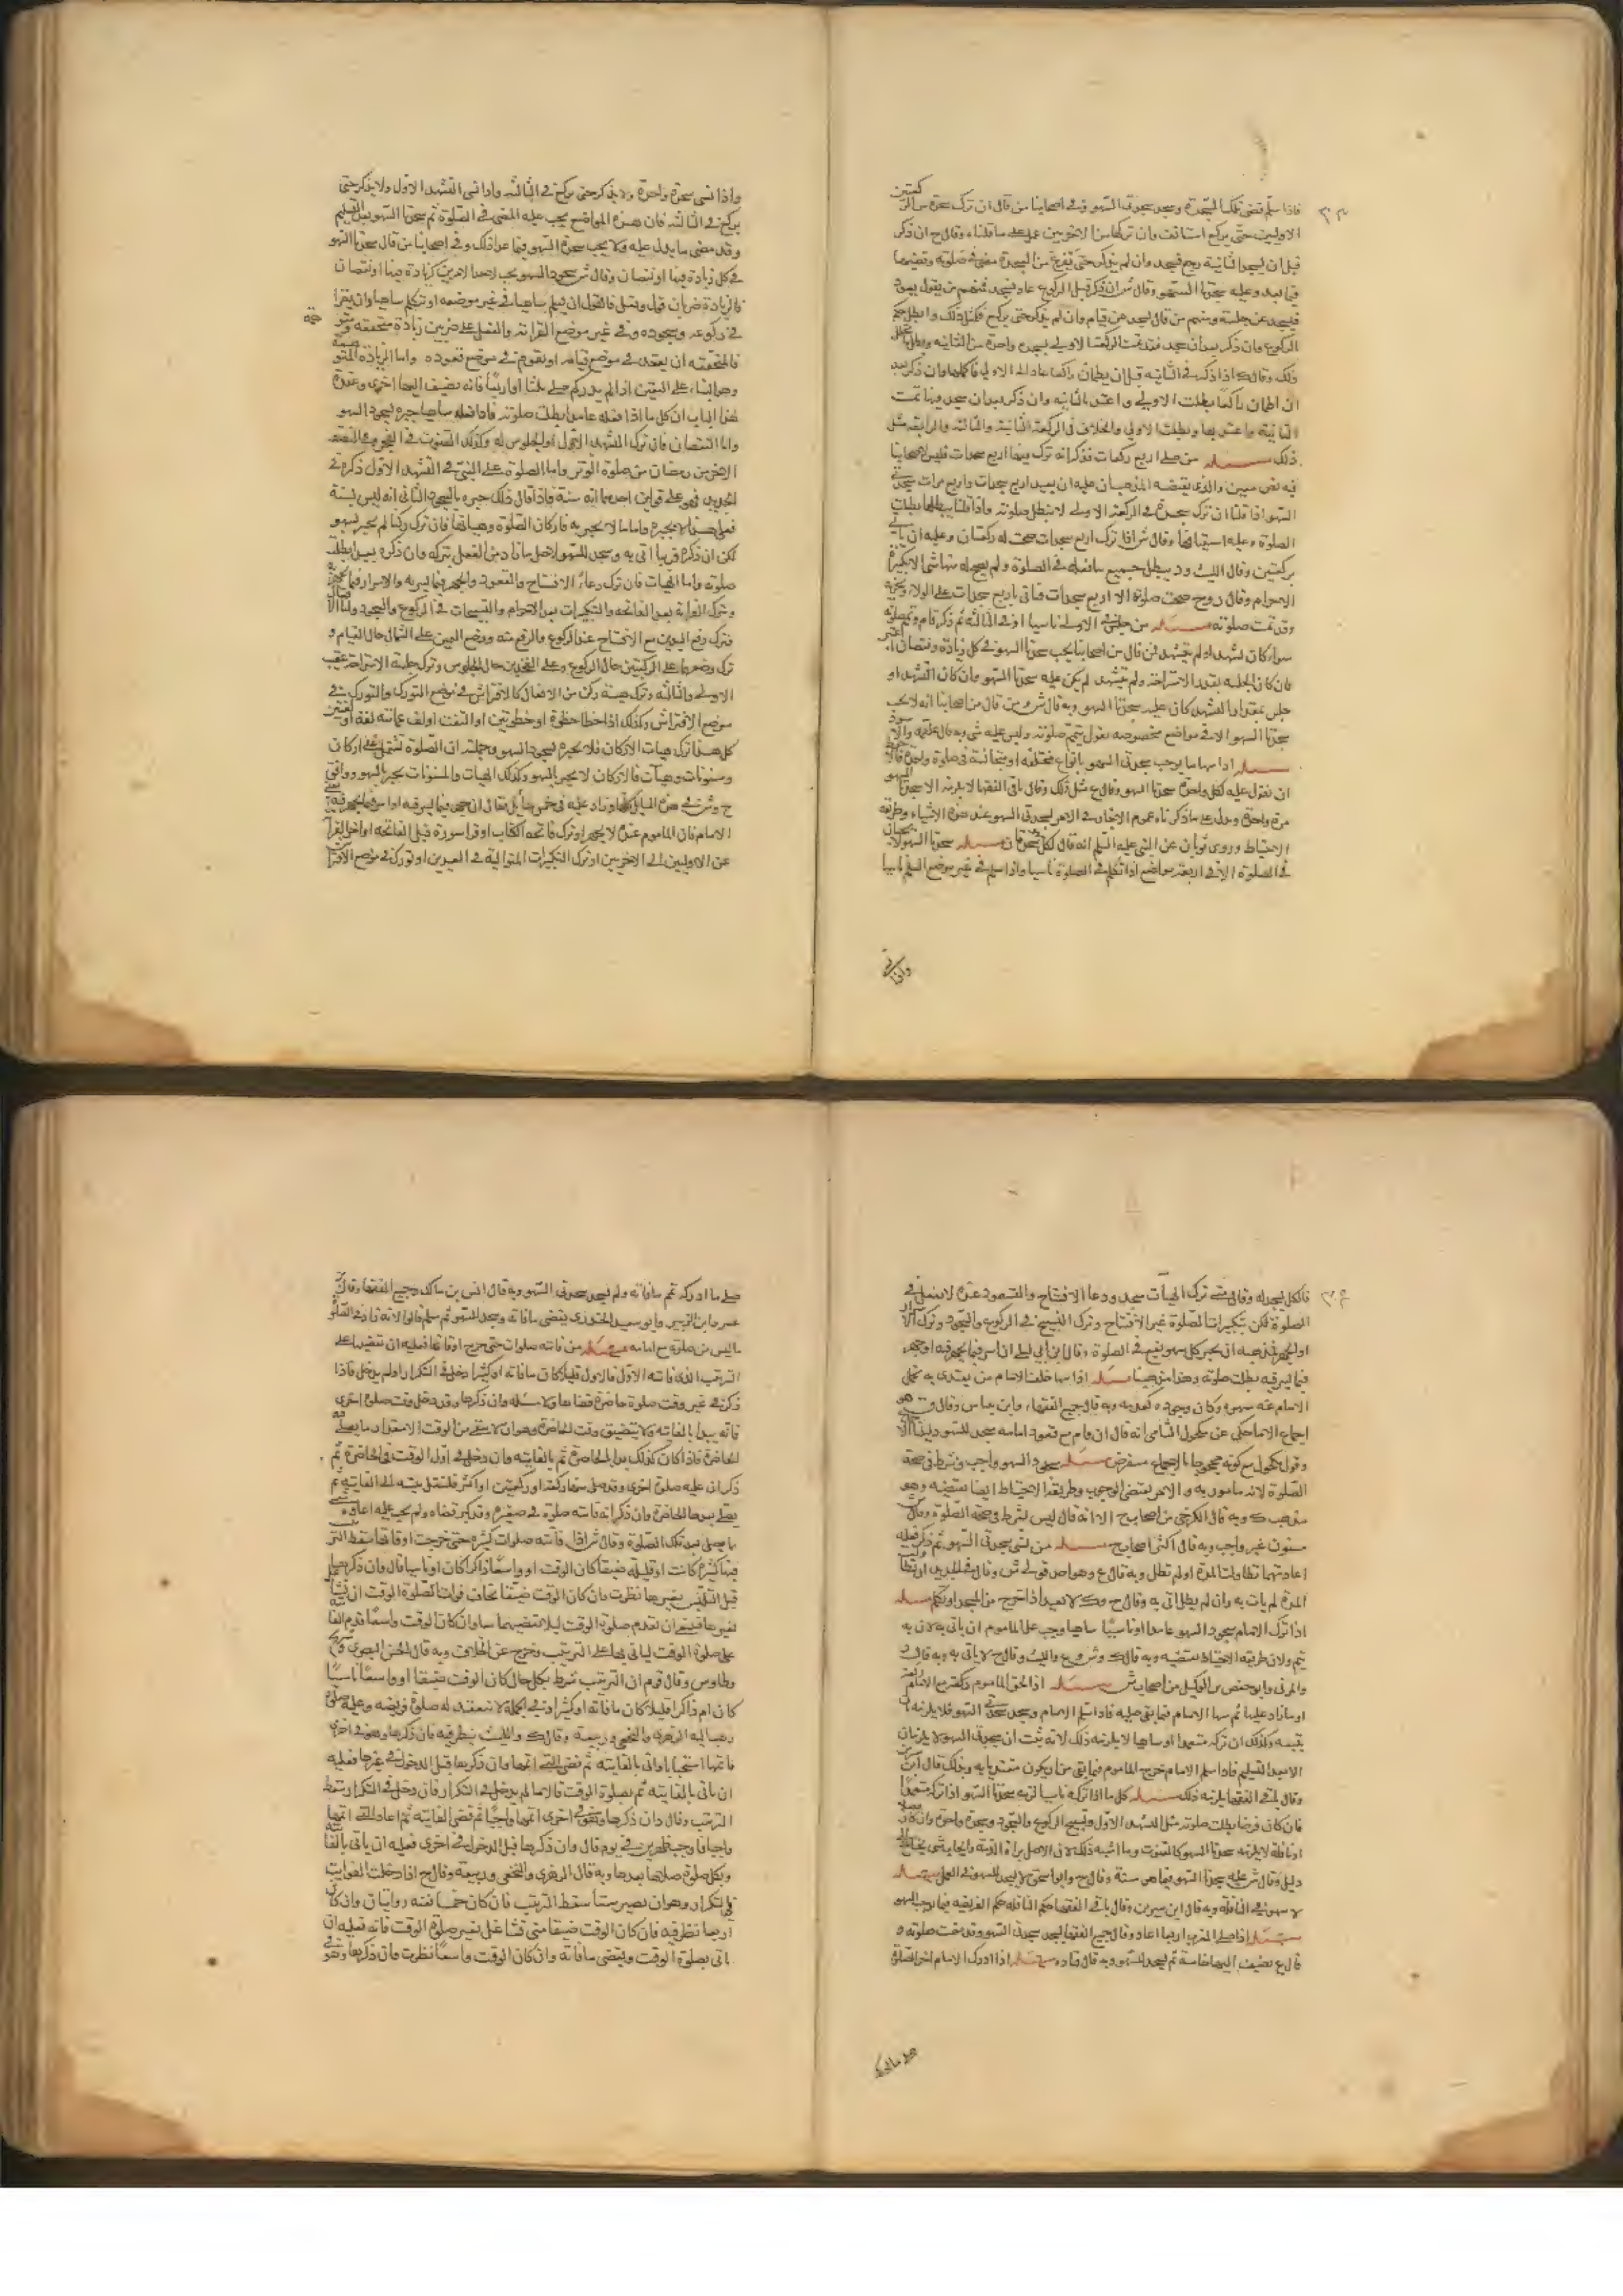 فاذا سلم قضى تلك السجدة وسجد سجدتى السهو وفى اصحابنا من قال ان ترك سجدة من الركعتين
الاوليين حتى يركع استانف وان تركها من الاخريين عمل على ما قلناه وقال ح ان ذكر
قبل ان يسجد الثانية رجع فسجد وان لم يذكر حتى تفرغ من السجدة مضى فى صلوته وقضيها
فيما بعد وعليه سجدتا السهو وقال ش ان ذكر قبل الركوع عاد فسجد فمنهم من يقول يعود
فيسجد عن جلسة ومنهم من قال يسجد عن قيام وان لم يذكر حتى يركع فكمثل ذلك وابطل حكم
الركوع وان ذكر بعد ان سجد فقد تمت الركعة الاولى بسجدة واحدة من الثانية وبطل
ذلك وقال ك اذا ذكر فى الثانية قبل ان يطمان راكعا عاد الى الاولى فاكملها وان ذكر بعد
ان اطمان راكعا بطلت الاولى واعتد بالثانية وان ذكر بعد ان سجد فيها تمت
الثانية واعتد بها وبطلت الاولى والخلاف فى الركعة الثانية والثالثة والرابعة مثل
ذلك مسئله من صلى اربع ركعات فذكر انه ترك فيها اربع سجدات فليس لاصحابنا
فيه نص معين والذى يقتضيه المذهب ان عليه ان يعيد اربع سجدات واربع مرات سجدتى
السهو اذا قلنا ان ترك سجدة فى الركعة الاولى لا تبطل صلوته واذا قلنا يبطلها بطلت
الصلوة وعليه استينافها وقال ش اذا ترك اربع سجدات صحت له ركعتان وعليه ان ياتى
بركعتين وقال الليث ود يبطل جميع ما فعله فى الصلوة ولم يصح له منها شئ الا تكبيرة
الاحرام وقال روح صحت صلوته الا اربع سجدات فياتى باربع سجدات على الولاء
وقد تمت صلوته مسئله من جلس فى الاولى ناسيا او فى الثالثة ثم ذكر قام وتمم صلوته
سواء كان تشهد او لم يتشهد فمن قال من اصحابنا يجب سجدتا السهو فى كل زيادة ونقصان
فان كان الجلسة بقدر الاستراحة ولم يتشهد لم يكن عليه سجدتا السهو وان كان التشهد او
جلس بمقدار التشهد كان عليه سجدتا السهو وبه قال ش ومن قال من اصحابنا انه لا يجب
سجدتا السهو الا فى مواضع مخصوصة يقول يتمم صلوته وليس عليه شئ وبه قال علقمة والاسود
مسئله اذا سها ما يوجب سجدتى السهو بانواع مختلفة او متجانسة فى صلوة واحدة
ان نقول عليه لكل واحدة سجدتا السهو وقال ع مثل ذلك وقال باقى الفقها لا يلزمه الا سجدتا السهو
مرة واحدة ويدل على ما ذكرناه عموم الاخبار فى الامر بسجدتى السهو عند هذه الاشياء وطريقة
الاحتياط وروى ثوبان عن النبى عليه السلم انه قال لكل سهو سجدتان مسئله سجدتا السهو لا تجبان
فى الصلوة الا فى اربعة مواضع اذا تكلم فى الصلوة ناسيا واذا سلم فى غير موضع السلم ناسيا
واذا نسى
واذا نسى سجدة واحدة ولا يذكر حتى يركع فى الثالثة واذا نسى التشهد الاول ولا يذكر حتى
يركع فى الثالثة فان هذه المواضع يجب عليه المضى فى الصلوة ثم سجدتا السهو بعد التسليم
وقد مضى ما يدل عليه ولا يجب سجدة السهو فيما عدا ذلك وفى اصحابنا من قال سجدتا السهو
فى كل زيادة فيها او نقصان وقال ش سجود السهو يجب لاحد الامرين لزيادة فيها او نقصان
فالزيادة ضربان قول وفعل فالقول ان يسلم ساهيا فى غير موضعه او تكلم ساهيا وان يقرأ
فى ركوعه وسجوده وفى غير موضع القراءة والفعل على ضربين زيادة متحققة
فالمتحققة ان يقعد فى موضع قيامه او يقوم فى موضع قعوده واما الزيادة المتوهمة
وهو البناء على اليقين اذا لم يدر كم صلى ثلثا او اربعا فانه يضيف اليها اخرى وعقدة
هذا الباب ان كل ما اذا فعله عامدا بطلت صلوته فاذا فعله ساهيا جبره بسجود السهو
واما النقصان فان ترك التشهد الاول او الجلوس له وكذلك القنوت فى الفجر وفى النصف
الاخير من رمضان من صلوة الوتر واما الصلوة على النبى فى التشهد الاول ذكره فى
الجديد فهو على قولين احدهما انه سنة فاذا قال ذلك جبره بالسجود الثانى انه ليس بسنة
فعلى هذا لا يجبره واما ما لا يجبر به فاركان الصلوة وهياتها فان ترك ركنا لم يجبر بسهو
لكن ان ذكره قريبا اتى به وسجد للسهو لاجل ما زاد من الفعل بتركه وان ذكره بعيدا بطلت
صلوته واما الهيات فان ترك دعاء الافتتاح والتعوذ والجهر فيما يسر به والاسرار فيما يجهر به
وترك القراءة بعد الفاتحة والتكبيرات بعد الاحرام والتسبيحات فى الركوع والسجود
فترك رفع اليدين مع الافتتاح عند الركوع والرفع منه ووضع اليمين على الشمال حال القيام و
ترك وضعهما على الركبتين حال الركوع وعلى الفخذين حال الجلوس وترك جلسة الاستراحة عقيب
الاولى والثالثة وترك هيئة ركن من الافعال كالافتراش فى موضع التورك والتورك فى
موضع الافتراش وكذلك اذا خطا خطوة او خطوتين او التفت او لف عمامته لفة او لفتين
كل هذا ترك هيات الاركان فلا يجبره بسجود السهو وجملته ان الصلوة تشتمل على اركان
ومسنونات وهيآت فالاركان لا يجبر بالسهو وكذلك الهيات والمسنونات يجبر بالسهو ووافق
ح وش فى هذه المسائل كلها وزاد عليه فى خمس مسائل فقال ان جهر فيما يسر فيه او اسر فيما يجهر فيه
الامام فان الماموم عنده لا يجهر او ترك فاتحة الكتاب او قرا سورة قبل الفاتحة او اخر القراءة
عن الاوليين الى الاخريين او ترك التكبيرات المتوالية فى العيدين او تورك فى موضع الافتراش
فالكل يسجد له وقال متى ترك الهيات سجد ودعاء الافتتاح والتعوذ عنده لا يفعل فى
الصلوة لكن تكبيرات الصلوة غير الافتتاح وترك التسبيح فى الركوع والسجود وترك
او الجهر فمذهبه ان يجبر كل سهو يقع فى الصلوة وقال ابن ابى ليلى ان اسر فيما يجهر فيه او جهر
فيما يسر فيه بطلت صلوته وهذا مذهبنا مسئله اذا سها خلف الامام من يقتدى به تحمل
الامام عنه سهوه وكان وجوده كعدمه وبه قال جميع الفقهاء وابن عباس وقال
اجماع الا ما حكى عن مكحول الشامى انه قال ان قام مع قعود امامه سجد للسهو دليلنا
وقول مكحول مع كونه محجوجا بالاجماع منقرض مسئله سجود السهو واجب وشرط فى صحة
الصلوة لانه مامور به والامر يقتضى الوجوب وطريقة الاحتياط ايضا تقتضيه وهو
مذهب ك وبه قال الكرخى من اصحاب ح الا انه قال ليس بشرط فى صحة الصلوة وقال ش
مسنون غير واجب وبه قال اكثر اصحاب ح مسئله من نسى سجدتى السهو ثم ذكر فعليه
اعادتهما تطاولت المدة او لم تطل وبه قال ع وهو احد قولى ش وقال فى الجديد ان تطاولت
المدة لم يات به وان لم يطل اتى به وقال ح وك لا يعيد اذا خرج من المسجد او تكلم مسئله
اذا ترك الامام سجود السهو عامدا او ناسيا وجب على الماموم ان ياتى به لان به
يتم ولان طريقة الاحتياط تقتضيه وبه قال ك وش وع والليث وقال ح لا ياتى به وبه قال
والمزنى وابو حفص بن الوكيل من اصحاب ش مسئله اذا لحق الماموم ركعة مع الامام
او ما زاد عليها ثم سها الامام فيما بقى عليه فاذا سلم الامام وسجد سجدتى السهو فلا يلزمه
يتبعه وكذلك ان تركه متعمدا او ساهيا لا يلزمه ذلك لانه ثبت ان سجدتى السهو لا يكونان
الا بعد التسليم فاذا سلم الامام خرج الماموم فيما بقى من ان يكون مقتديا به وبذلك قال ابن سيرين
وقال باقى الفقها يلزمه ذلك مسئله كل ما اذا تركه ناسيا لزمه سجدتا السهو اذا تركه متعمدا
فان كان فرضا بطلت صلوته مثل التشهد الاول وتسبيح الركوع والسجود وسجدة واحدة وان كان
او نافلة لا يلزمه سجدتا السهو كالقنوت وما اشبه ذلك لان الاصل براة الذمة وايجاب شئ يحتاج الى
دليل وقال ش عليه سجدتا السهو فيما هو سنة وقال ح وابو اسحق لا يسجد للسهو فى العمد مسئله
لا سهو فى النافلة وبه قال ابن سيرين وقال باقى الفقها حكم النافلة حكم الفريضة فيما يوجب السهو
مسئله اذا صلى المغرب اربعا اعاد وقال جميع الفقها يسجد سجدتى السهو وقد تمت صلوته و
قال ع يضيف اليها خامسة ثم يسجد للسهو وبه قال قتادة مسئله اذا ادرك الامام اخر الصلوة
صلى ما ادرك
صلى ما ادركه تم ما فاته ولم يسجد سجدتى السهو وبه قال انس بن مالك وجميع الفقها وقال
عمر وابن الزبير وابو سعيد الخدرى يقضى ما فاته وسجد للسهو ثم سلم قالوا لانه زاد فى الصلوة
ما ليس من صلوته مع امامه مسئله من فاتته صلوات حتى خرج اوقاتها فعليه ان يقضيها على
الترتيب الذى فاتته الاول فالاول قليلا كان ما فاته او كثيرا دخل فى التكرار او لم يدخل فاذا
ذكر فى غير وقت صلوة حاضرة قضاها ولا مسئلة وان ذكرها وقد دخل وقت صلوة اخرى
فانه يبدا بالفائتة ما لا يتضيق وقت الحاضرة وهو ان لا يبقى من الوقت الا مقدار ما يصلى فيه
الحاضرة فاذا كان كذلك بدا بالحاضرة ثم بالفايتة وان دخل فى اول الوقت فى الحاضرة ثم
ذكر ان عليه صلوة اخرى وقد صلى منها ركعة او ركعتين او اكثر فلينقل نيته الى الفايتة ثم
يصلى بعدها الحاضرة وان ذكر انه فاتته صلوة فى صغره وقد كبر قضاه ولم يجب عليه اعادة
ما صلى بعد تلك الصلوة وقال ش اذا فاتته صلوات كثيرة حتى خرجت اوقاتها سقط الترتيب
فيها كثيرة كانت او قليلة ضيقا كان الوقت او واسعا ذاكرا كان او ناسيا قال وان ذكرها
قبل التلبس بغيرها نظرت فان كان الوقت ضيقا يخاف فوات الصلوة الوقت ان تشاغل
بغيرها فينبغى ان يقدم صلوة الوقت ليلا يقضيهما معا وان كان الوقت واسعا قدم الفائتة
على صلوة الوقت لياتى بها على الترتيب وخرج عن الخلاف وبه قال الحسن البصرى
وطاوس وقال قوم ان الترتيب شرط بكل حال كان الوقت ضيقا او واسعا ناسيا
كان ام ذاكرا قليلا كان ما فاته او كثيرا وفى الجملة لا تنعقد له صلوة فريضة وعليه صلوة
ذهب اليه الزهرى والنخعى وربيعة وقال ك والليث ينظر فيه فان ذكرها وهو فى اخرى
فاتمها استحبابا واتى بالفائتة ثم قضى التى اتمها وان ذكرها قبل الدخول فى غيرها فعليه
ان ياتى بالفايتة ثم بصلوة الوقت قال ما لم يدخل فى التكرار فان دخل فى التكرار سقط
الترتيب وقال د ان ذكرها وهو فى اخرى اتمها واجبا ثم قضى الفايتة ثم اعاد التى اتمها
واجبا فاوجب ظهرين فى يوم قال وان ذكرها قبل الدخول فى اخرى فعليه ان ياتى بالفائتة
وبكل صلوة صلاها بعدها وبه قال الزهرى والنخعى وربيعة وقال ح اذا دخلت الفوايت
فى التكرار وهو ان تصير ستا سقط الترتيب فان كان خمسا فعنه روايتان وان كان
اربعا نظر فيه فان كان الوقت ضيقا متى تشاغل بغير صلوة الوقت فاته فعليه ان
ياتى بصلوة الوقت ويقضى ما فاته وان كان الوقت واسعا نظرت فان ذكرها وهو فى